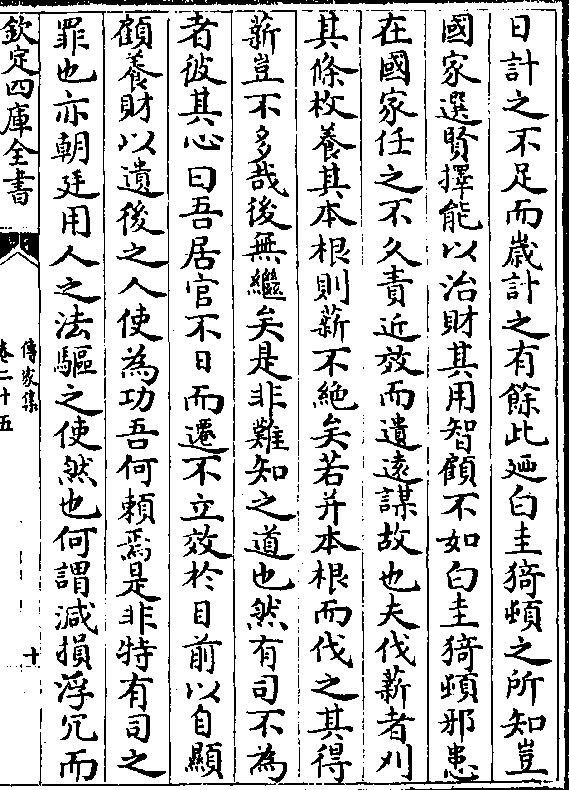 日計之不足而歲計之有餘此廼白圭猗頓之所知豈
國家選賢擇能以治財其用智顧不如白圭猗頓邪患
在國家任之不久責近效而遺遠謀故也夫伐薪者刈
其條枚養其本根則薪不絶矣若并本根而伐之其得
薪豈不多哉後無繼矣是非難知之道也然有司不為
者彼其心曰吾居官不日而遷不立效於目前以自顯
顧養財以遺後之人使為功吾何賴焉是非特有司之
罪也亦朝廷用人之法驅之使然也何謂減損浮冗而
欽定四庫全書
傳家集
卷二十五
十